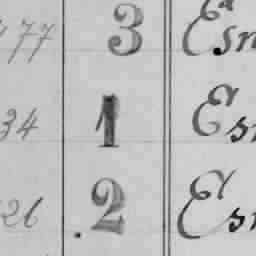 77 3 Esn
34 1 Esn
26 . 2 Esn